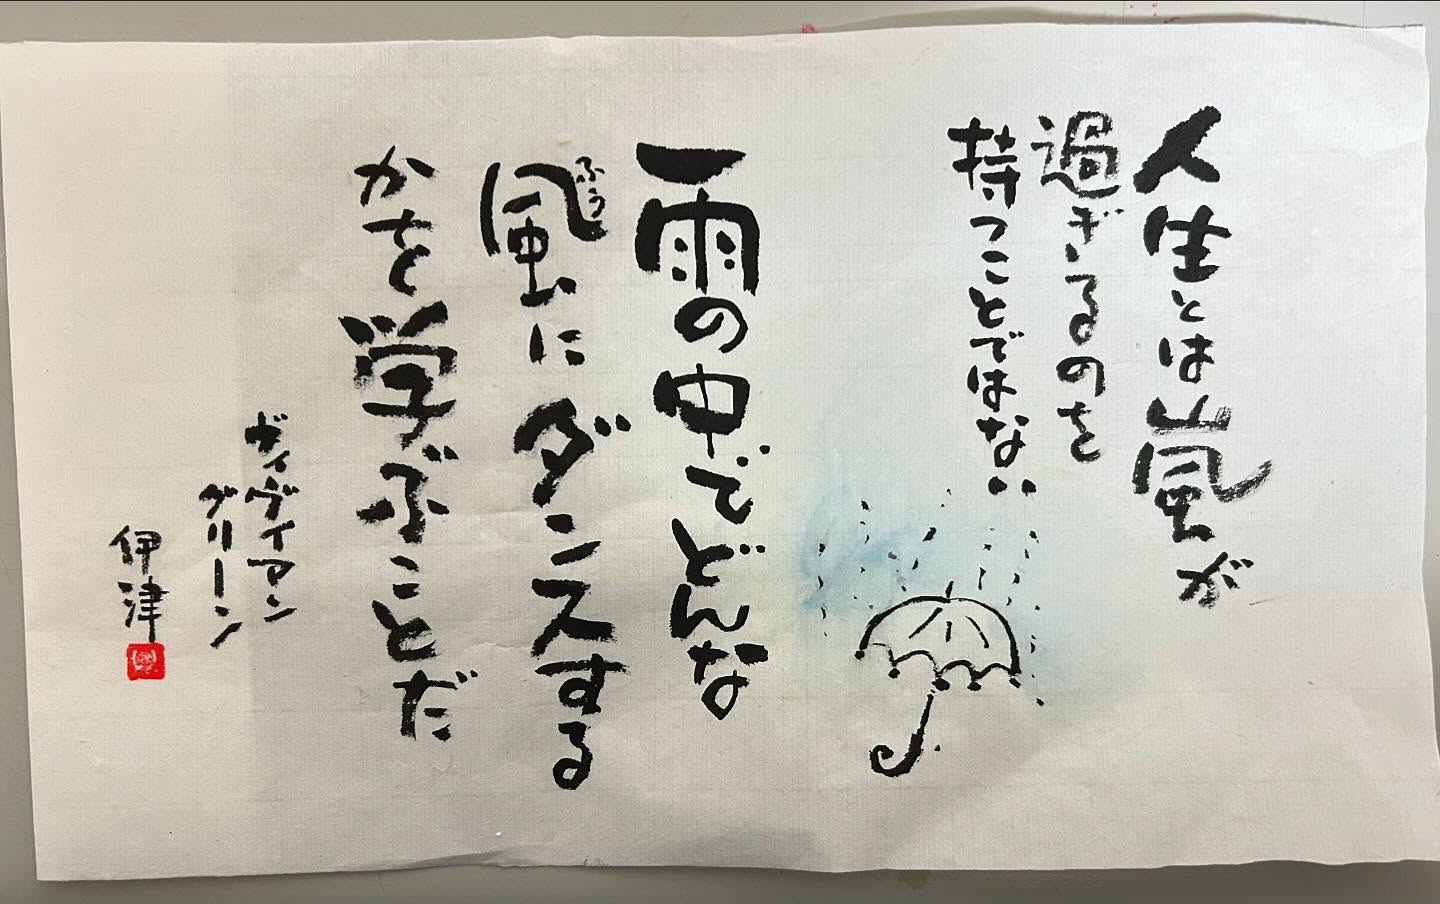 人生とは嵐が
過ぎるのを
持つことではない
雨の中でどんな
風にダンスする
ふう
かを学ぶことだ
ヴィヴィアン
グリーン
伊津